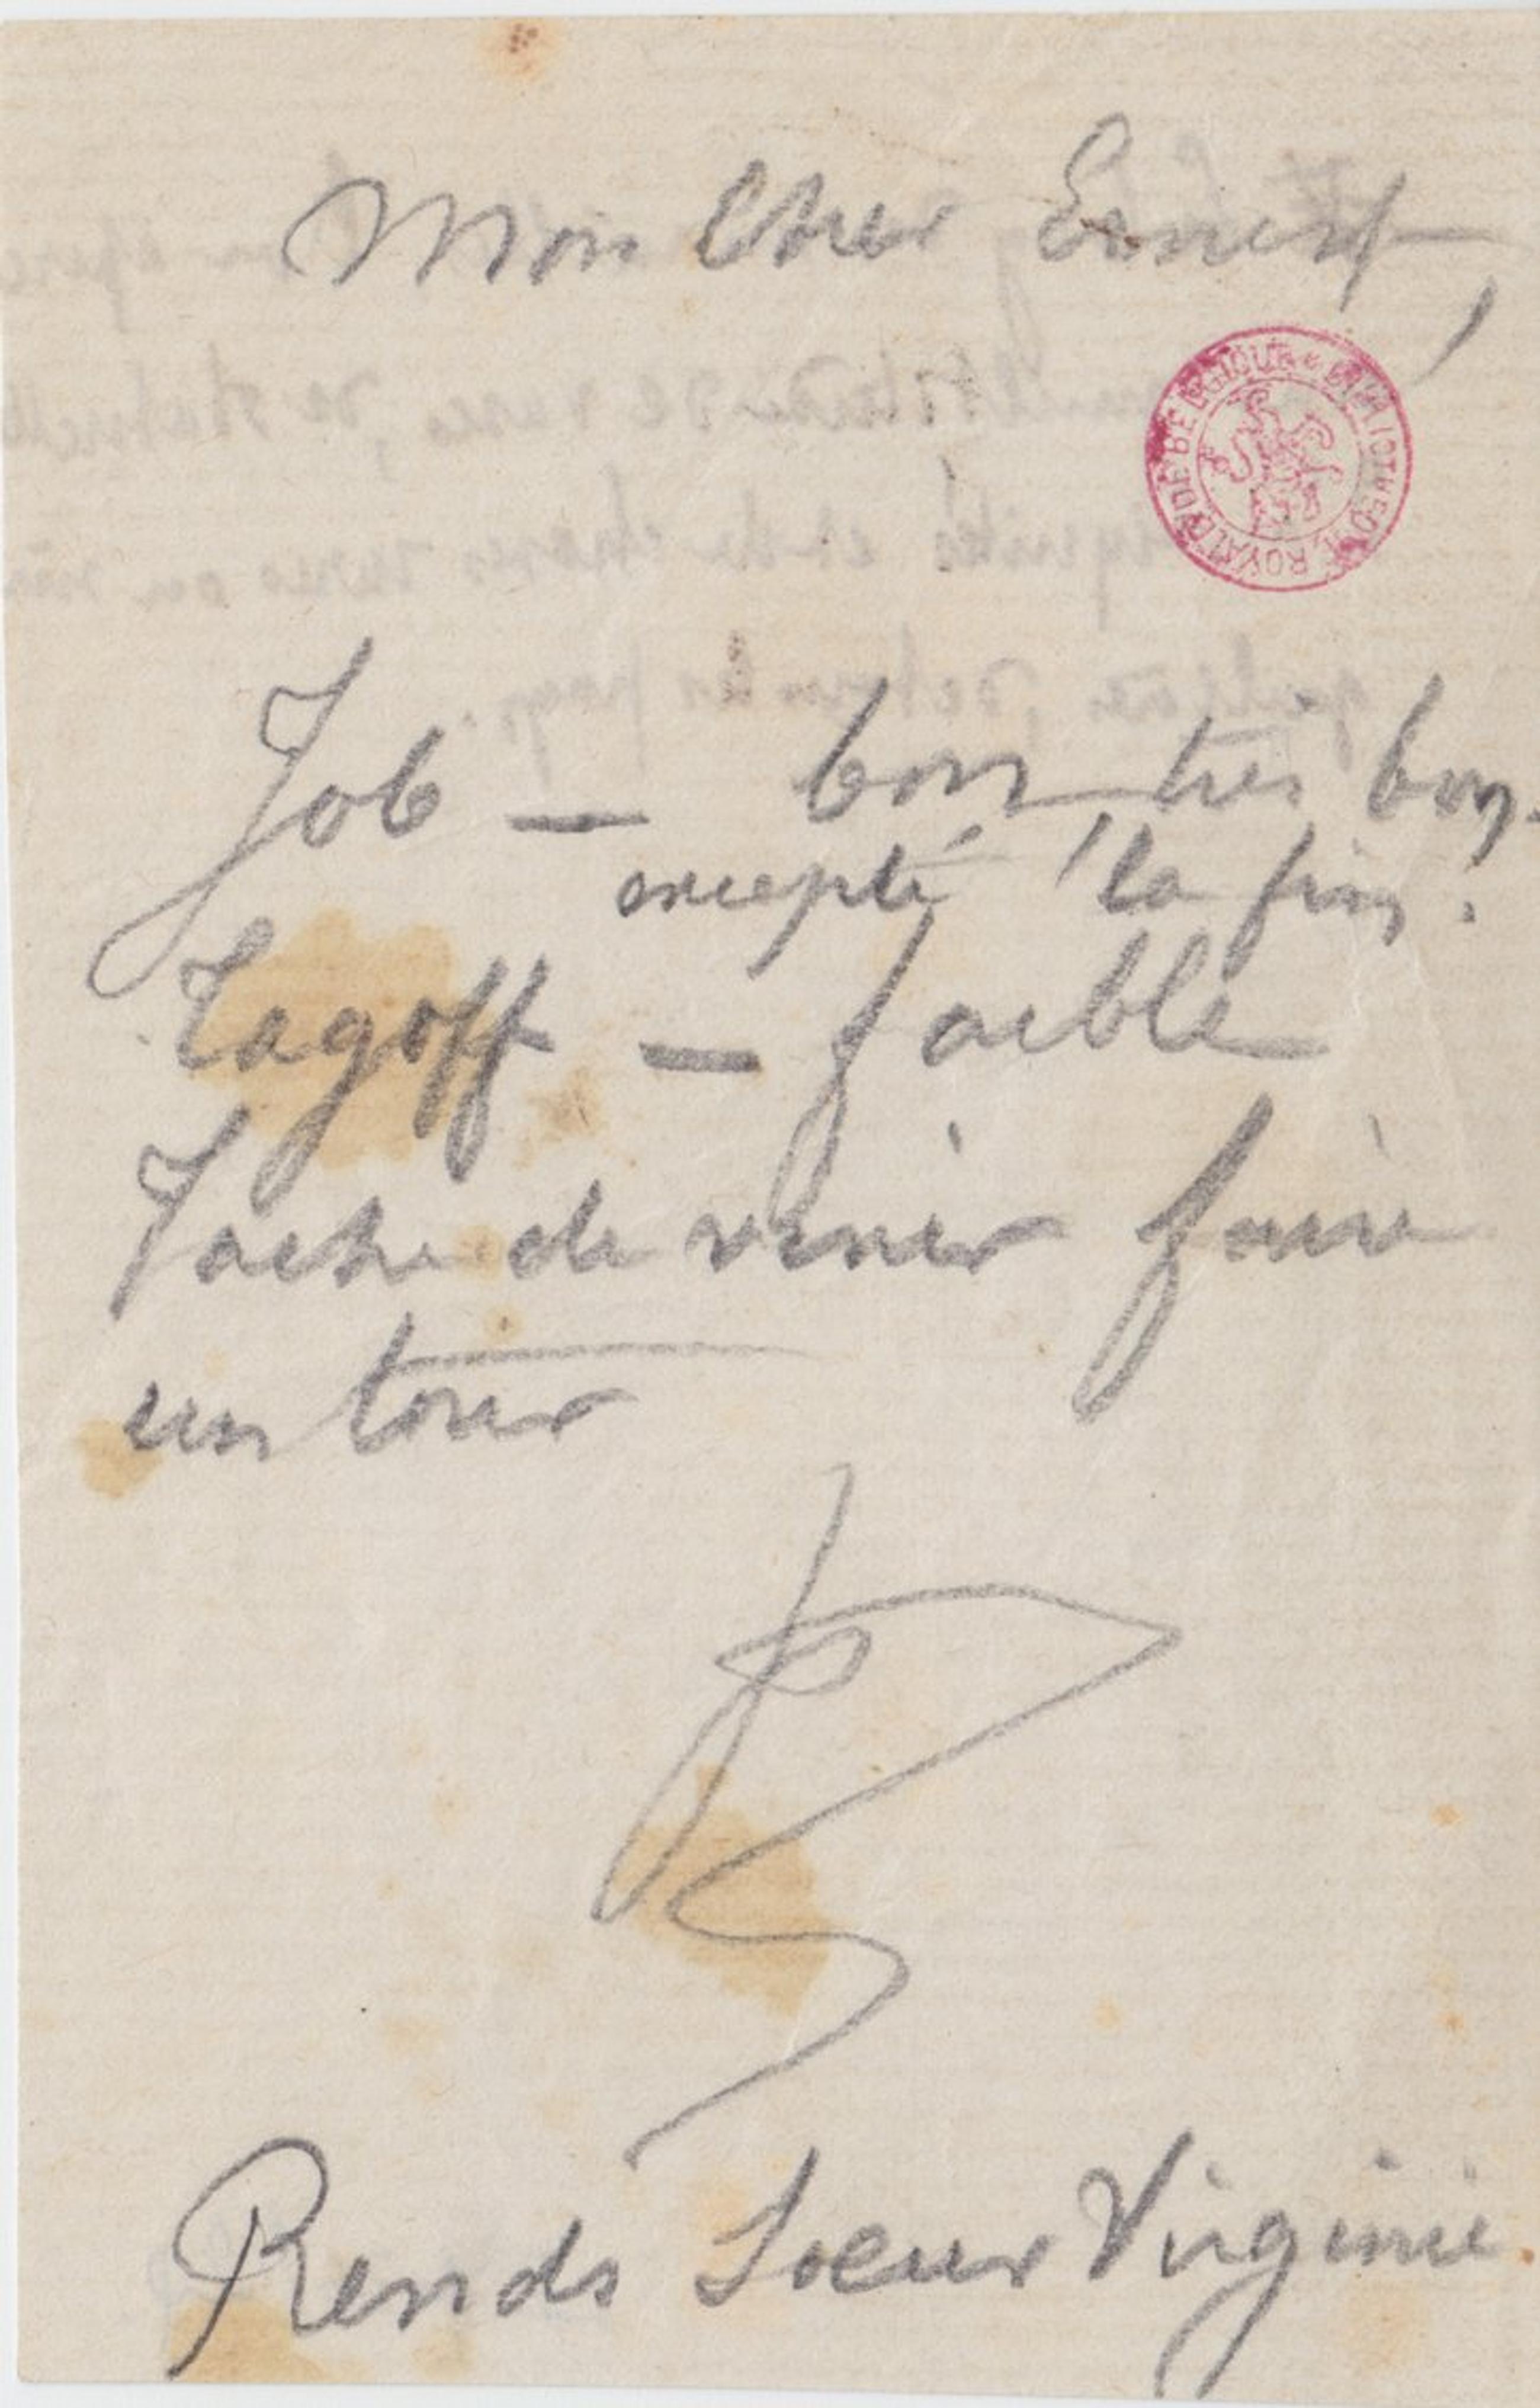 Mon Cher Ernest,
BIBLIOTHEQUE ROYALE DE BELGIQUE
Job — bon, très bon.
excepté la fin!
Lagoff — faible
Tache de venir faire
un tour
Rends Soeur Virginie.